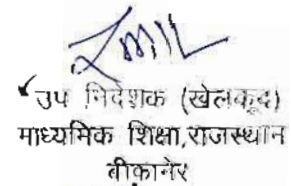 उप निदेशक (खेलकूद)
माध्यमिक शिक्षा,राजस्थान
बीकानेर